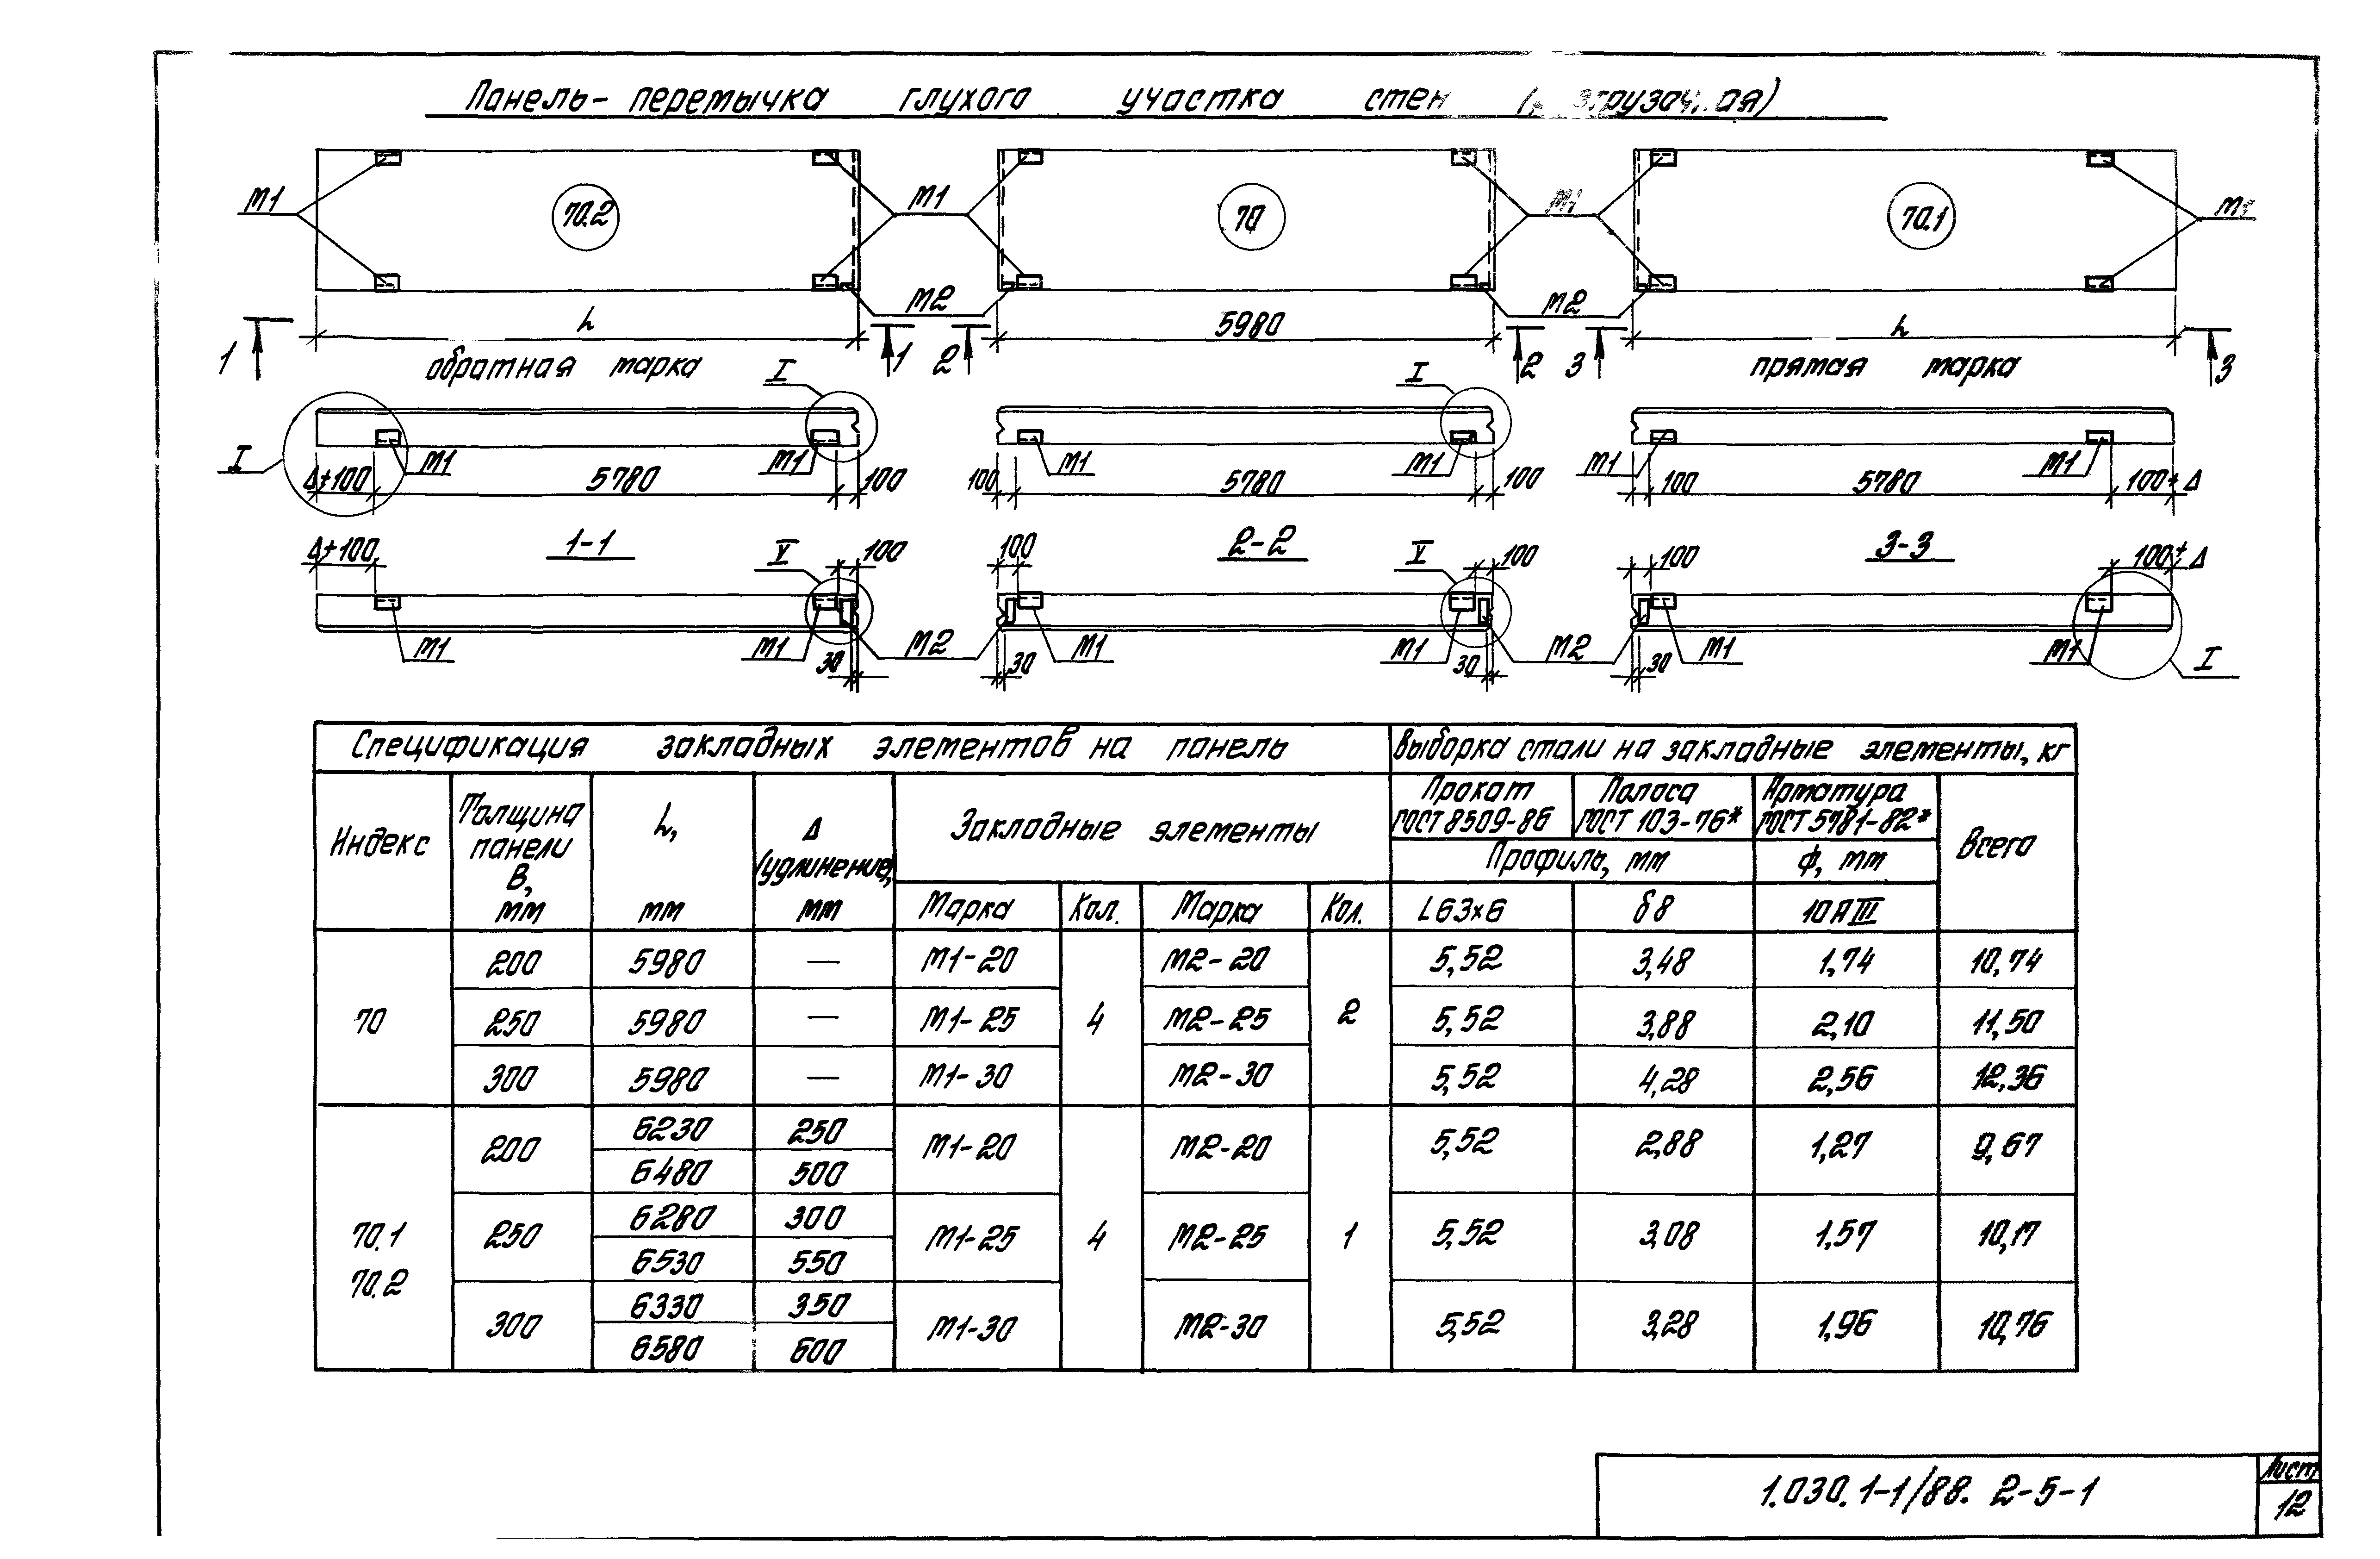 Панель-перемычка глухого участка стен
М1 70.2 М1 70 М1 70.1 М1
М2 М2
L 5980 L
1 1 2 2 3 3
обратная марка I I прямая марка
I М1 М1 М1 М1 М1 М1
Δ+100 5780 100 100 5780 100 100 5780 100+Δ
Δ+100 1-1 V 100 100 2-2 V 100 100 3-3 100+Δ
М1 М1 М2 М1 М1 М2 М1 М1 I
30 30 30 30
Спецификация закладных элементов на панель Выборка стали на закладные элементы, кг
Индекс Толщина панели В, мм L, мм Δ (удлинение), мм Закладные элементы Прокат ГОСТ 8509-86 Полоса ГОСТ 103-76* Арматура ГОСТ 5781-82* Всего
Профиль, мм ф, мм
Марка Кол. Марка Кол. L63х6 δ8 10АIII
70 200 5980 — М1-20 4 М2-20 2 5,52 3,48 1,74 10,74
250 5980 — М1-25 М2-25 5,52 3,88 2,10 11,50
300 5980 — М1-30 М2-30 5,52 4,28 2,56 12,36
70.1 70.2 200 6230 250 М1-20 4 М2-20 1 5,52 2,88 1,27 9,67
6480 500
250 6280 300 М1-25 М2-25 5,52 3,08 1,57 10,17
6530 550
300 6330 350 М1-30 М2-30 5,52 3,28 1,96 10,76
6580 600
1.030.1-1/88. 2-5-1
Лист
12